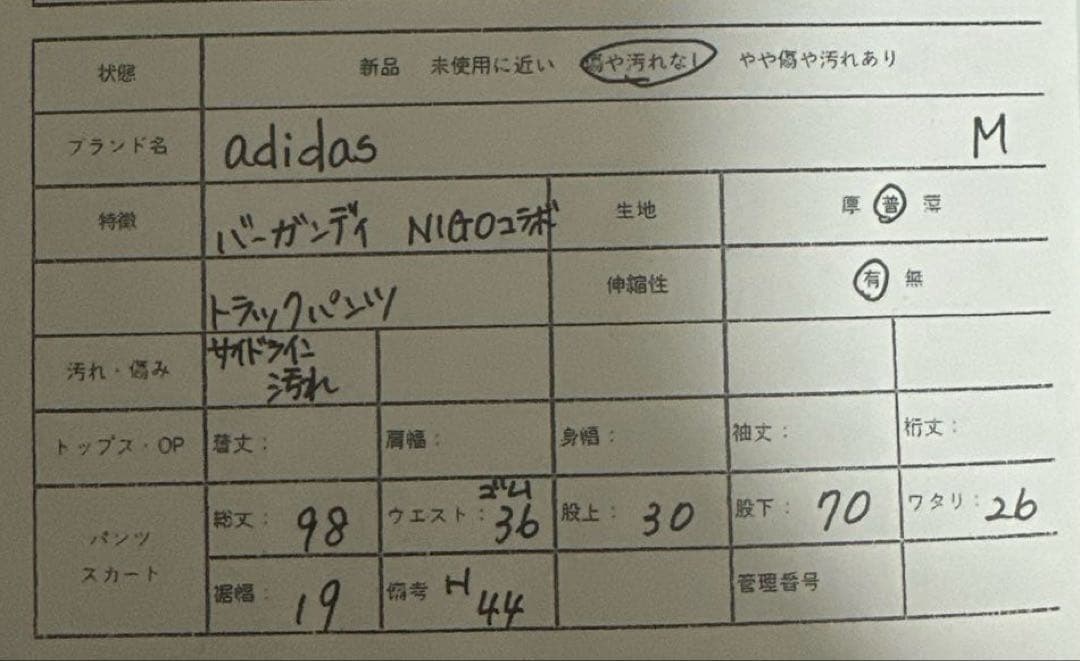 状態 新品 未使用に近い 傷や汚れなし やや傷や汚れあり
ブランド名 adidas M
特徴 バーガンディ NIGOコラボ 生地 厚 普 薄
トラックパンツ 伸縮性 有 無
汚れ・傷み サイドライン
汚れ
トップス・OP 着丈: 肩幅: 身幅: 袖丈: 裄丈:
パンツ
スカート
総丈: 98 ウエスト: ゴム 36 股上: 30 股下: 70 ワタリ: 26
裾幅: 19 備考 H 44 管理番号